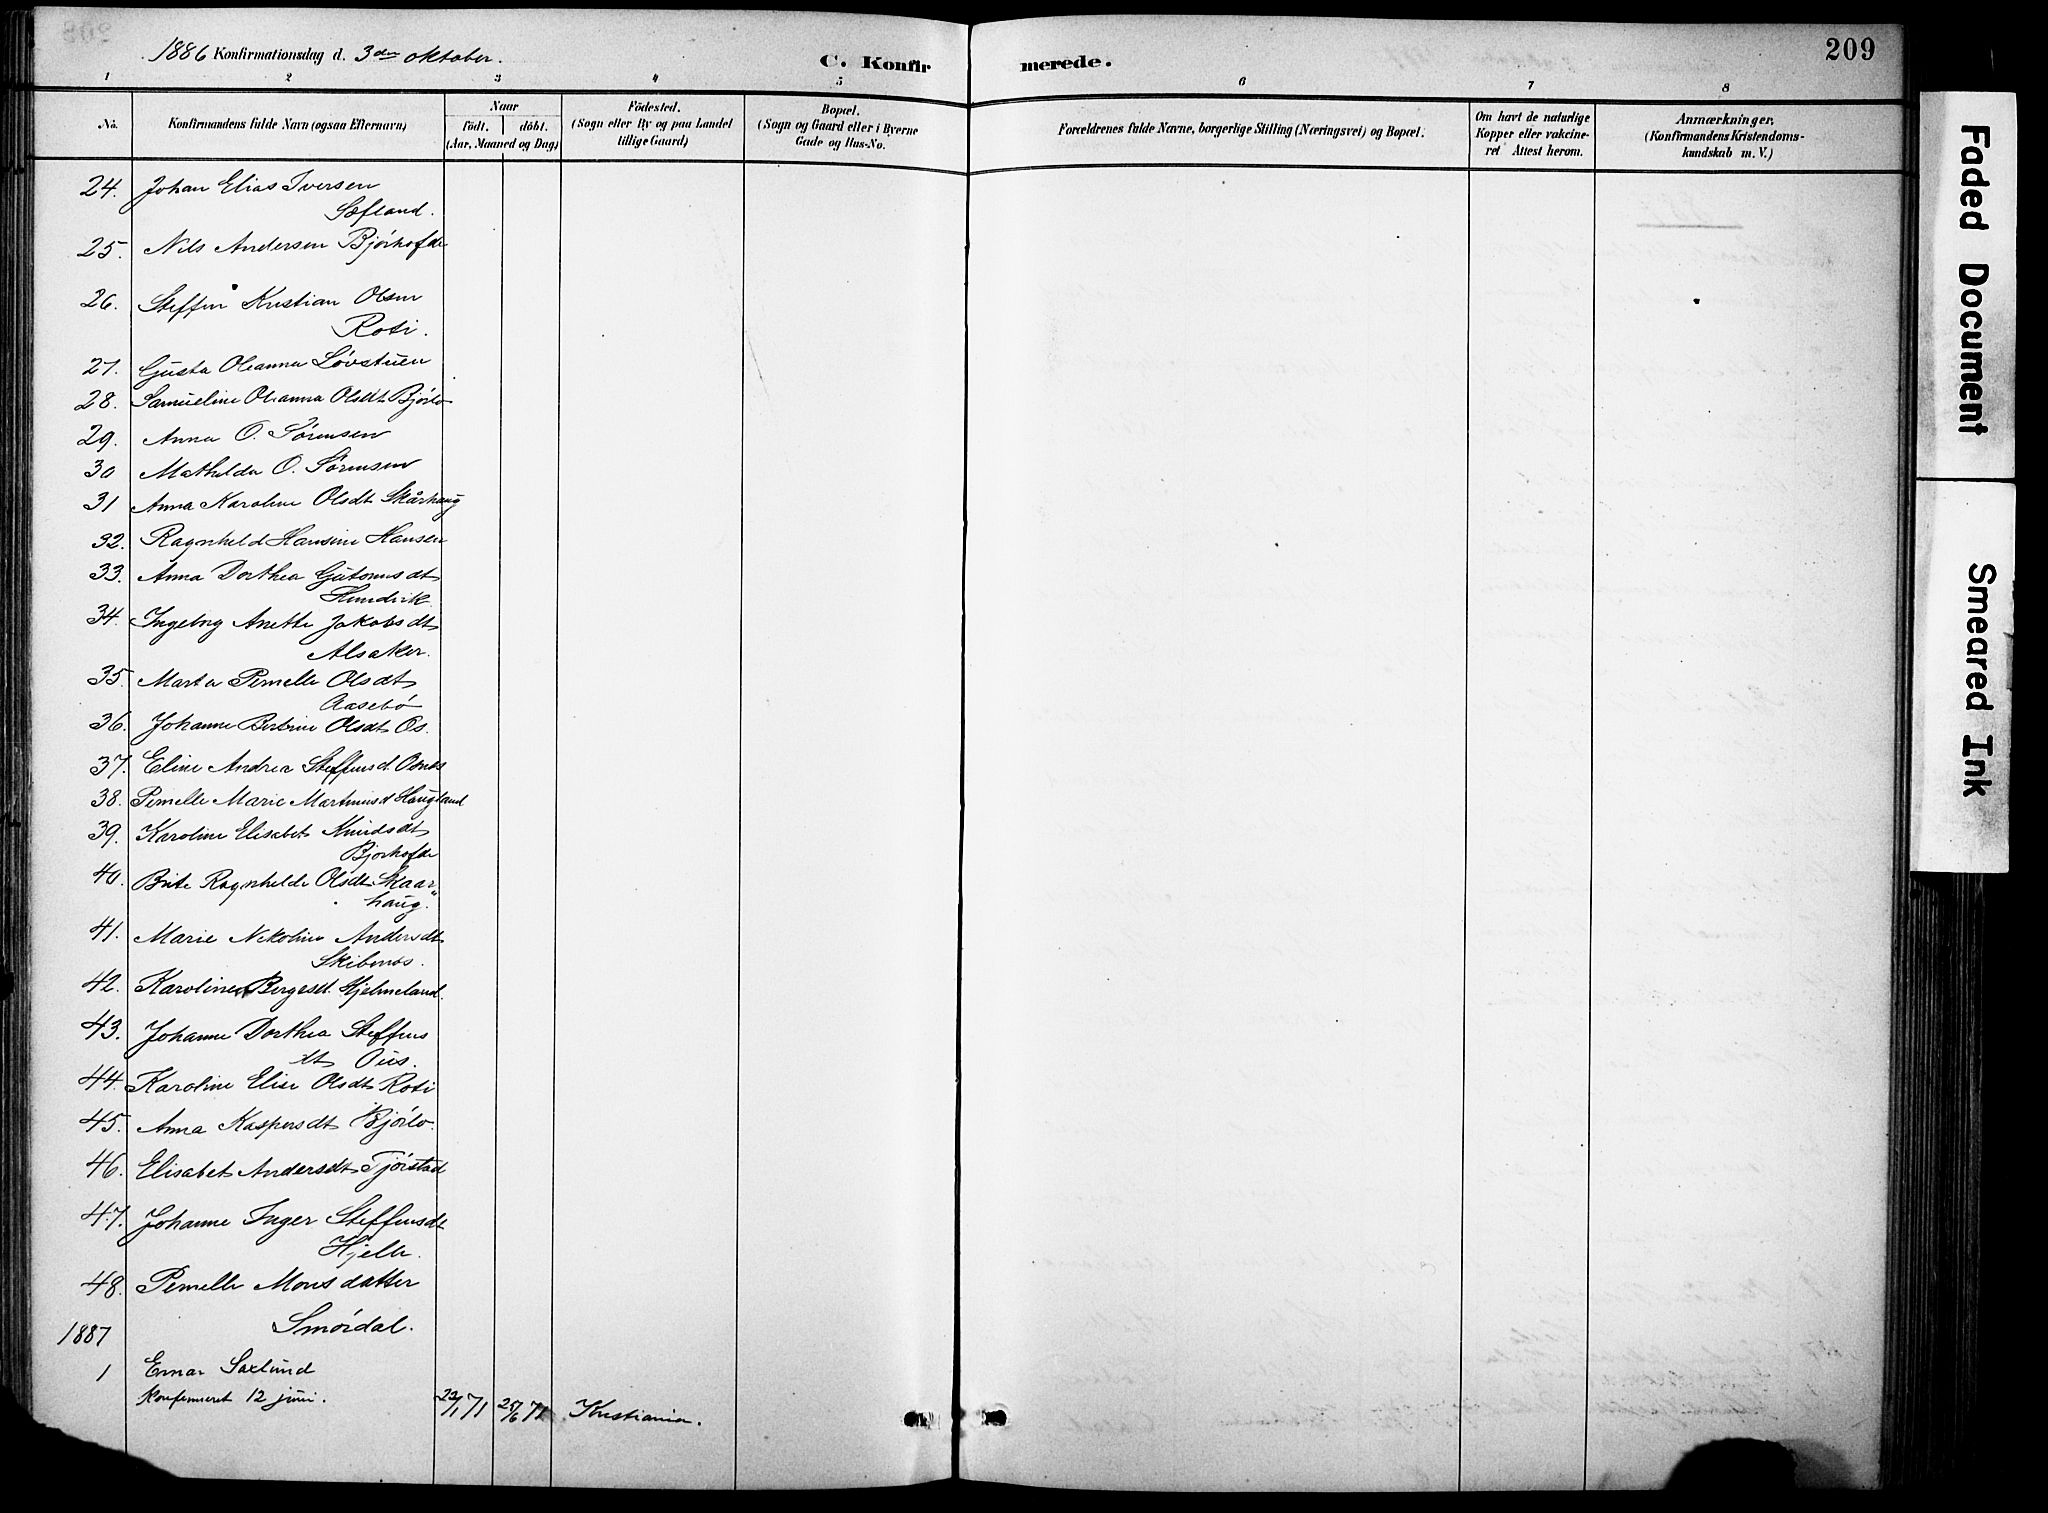 1886 Konfirmationsdag d. 3die oktober.
C. Konfirmerede.
209
1 2 3 4 5 6 7 8
No.
Konfirmandens fulde Navn (ogsaa Efternavn)
Naar
födt. döbt.
(Aar, Maaned og Dag)
Födested.
(Sogn eller By og paa Landet
tillige Gaard)
Bopæl.
(Sogn og Gaard eller i Byerne
Gade og Hus-No.
Forældrenes fulde Navne, borgerlige Stilling (Næringsvei) og Bopæl.
Om havt de naturlige
Kopper eller vakcine-
ret Attest herom.
Anmærkninger,
(Konfirmandens Kristendoms-
kundskab m. V.)
24. Johan Elias Iversen
Sæfland.
25. Nils Andersen Bjørhofde
26. Steffen Kristian Olsen
Roti.
27. Gusta Oleanna Løvstuen
28. Samueline Oleanna Olsdt Bjørlo
29. Anna O. Sørensen
30 Mathilda O. Sørensen
31 Anna Karoline Olsdt Skårhaug
32. Ragnhild Hansine Hansen
33. Anna Dorthea Gutormsdt
Hundvik
34. Ingebrg Anette Jakobsdt
Alsaker.
35. Marta Pernelle Olsdt
Aasebø
36. Johanne Bertine Olsdt Os.
37. Eline Andrea Steffensd. Osnes
38. Pernelle Marie Martinusd Haugland
39. Karoline Elisabet Knudsdt
Bjørhofde
40. Brite Ragnhilde Olsdt Skaar-
haug.
41. Marie Nikoline Andersdt
Skibenes.
42. Karoline Bergesd. Hjelmeland.
43. Johanne Dorthea Steffens
dt Øies.
44. Karoline Elise Olsdt Roti
45. Anna Kaspersdt Bjørlo.
46. Elisabet Andersdt Tjørstad
47. Johanne Inger Steffensdt
Hjelle.
48. Pernelle Monsdatter
Smørdal.
1887
1 Einar Saxlund
konfirmeret 12 juni. 22/1 71 25/6 71 Kristiania.
Faded Document
Smeared Ink